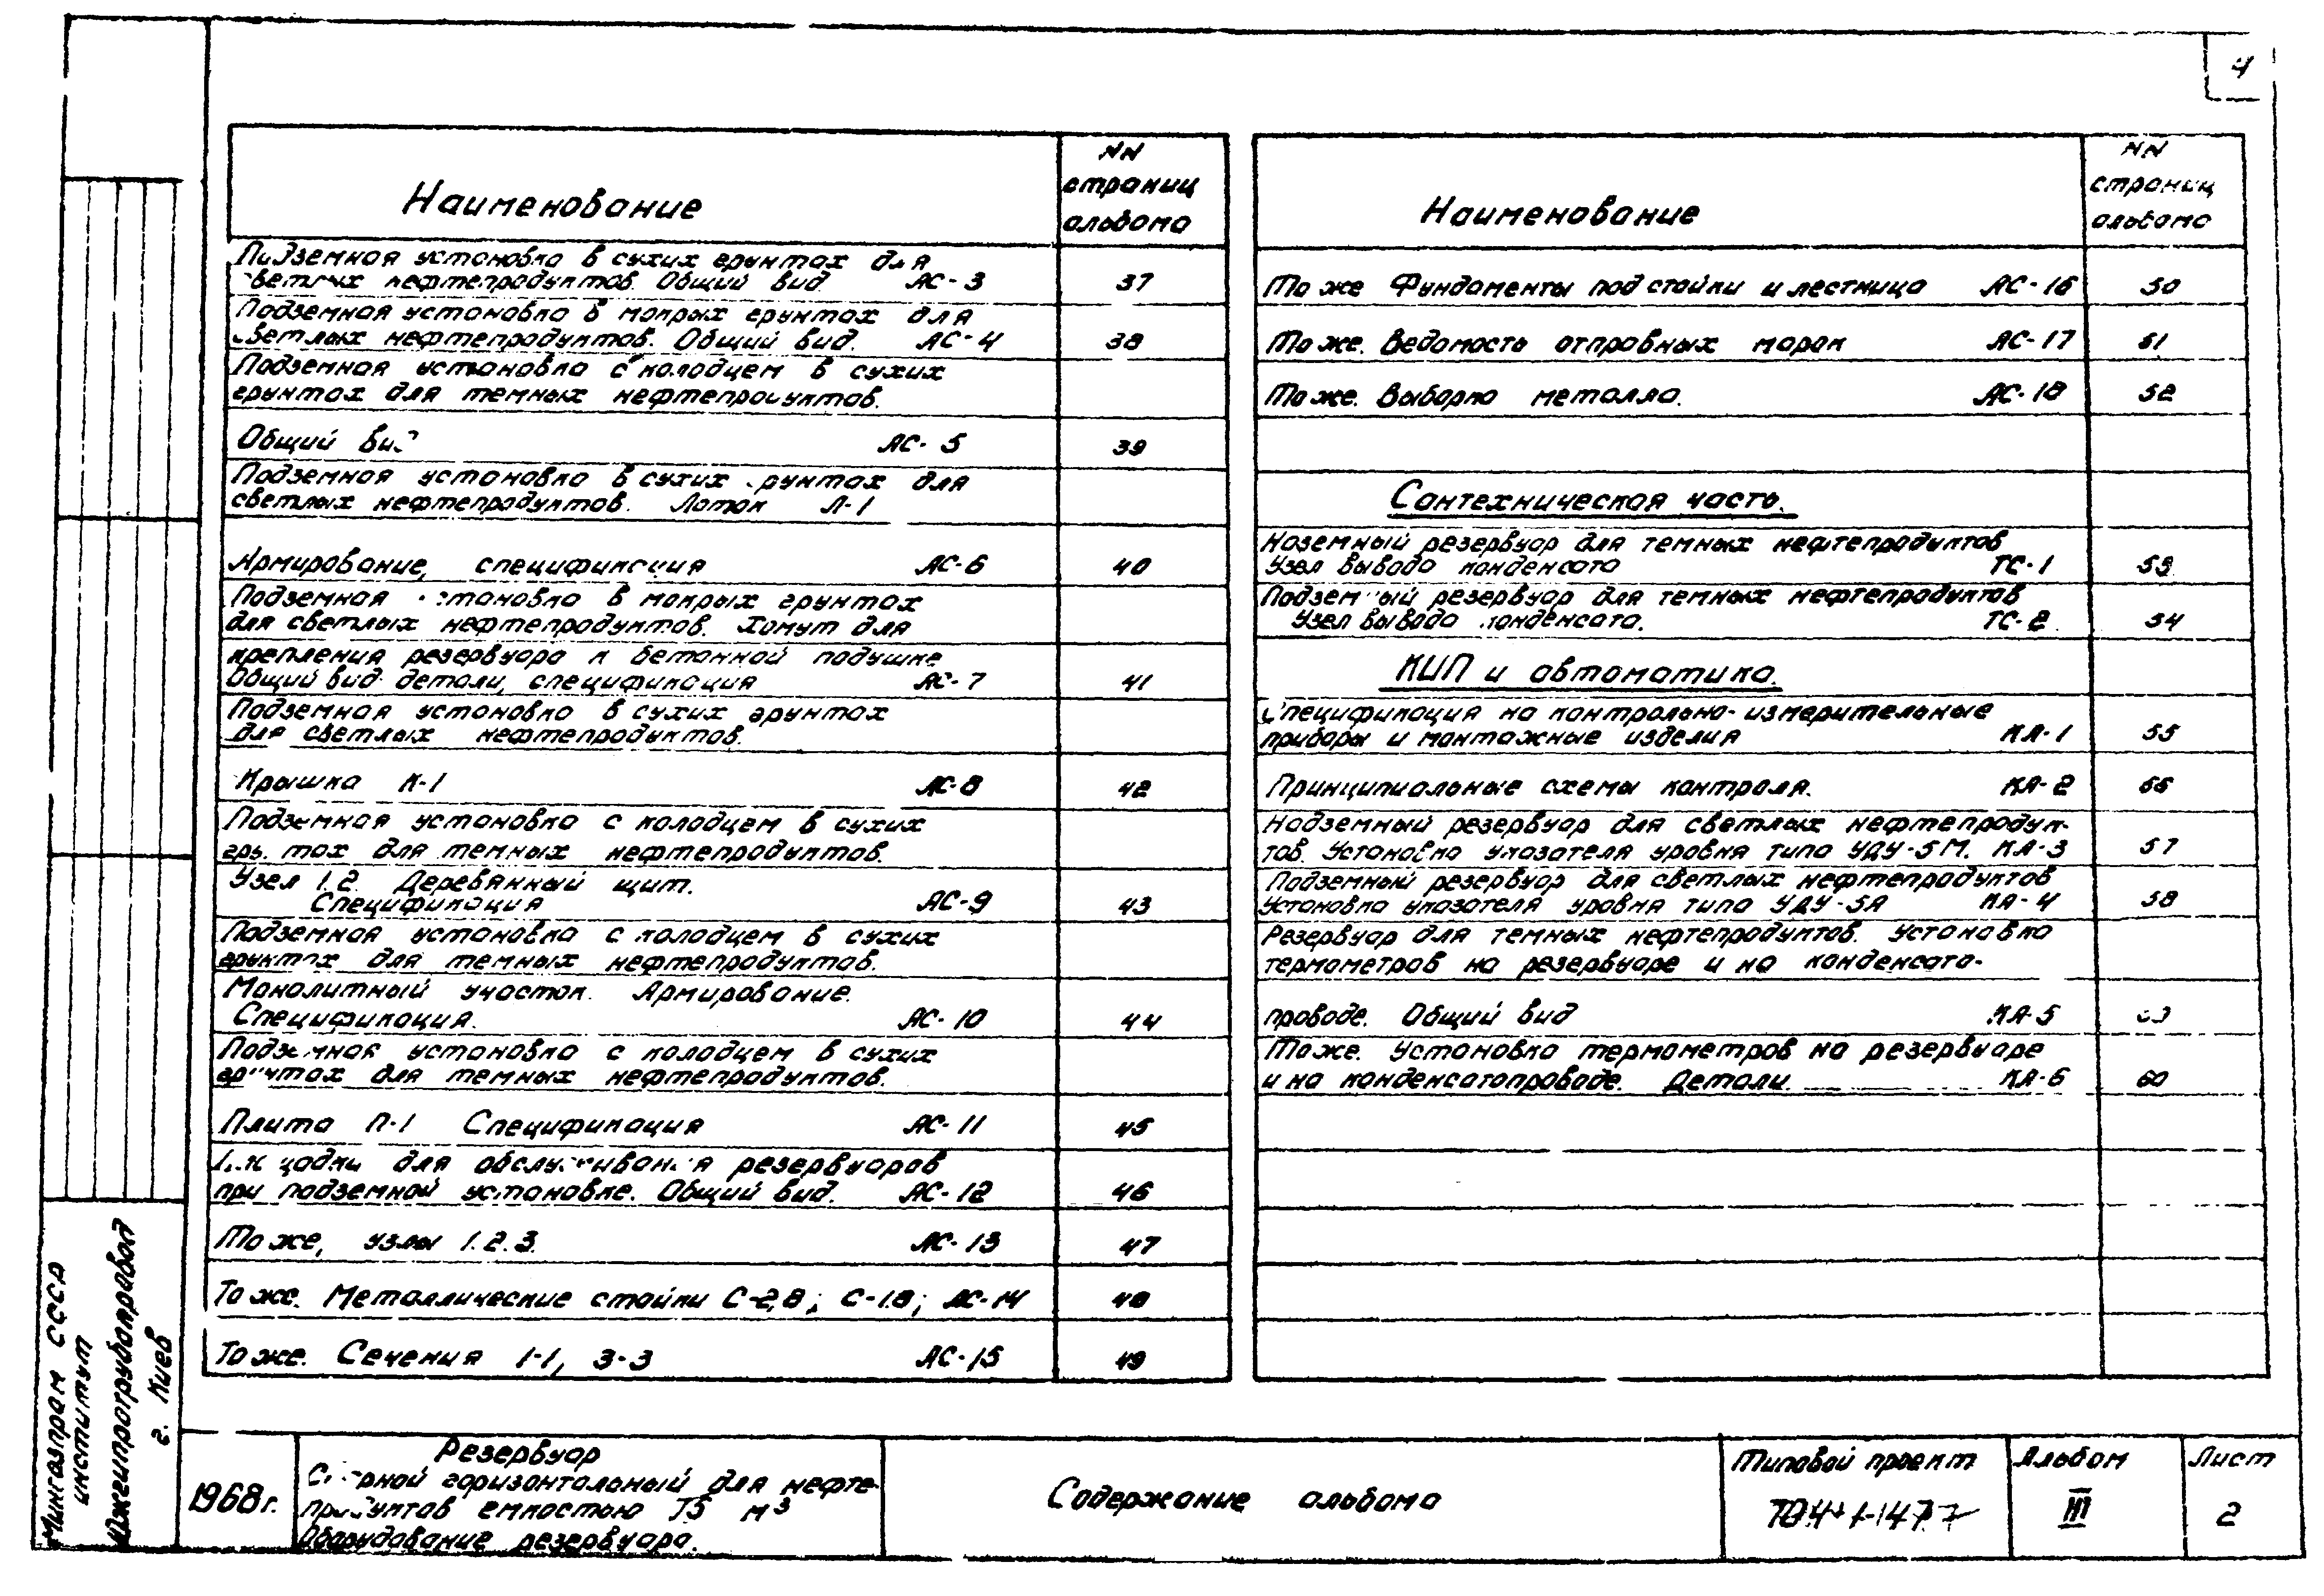 4
Наименование
NN
страниц
альбома
Подземная установка в сухих грунтах для
светлых нефтепродуктов. Общий вид АС-3 37
Подземная установка в мокрых грунтах для
светлых нефтепродуктов. Общий вид. АС-4 38
Подземная установка с колодцем в сухих
грунтах для темных нефтепродуктов.
Общий вид АС-5 39
Подземная установка в сухих грунтах для
светлых нефтепродуктов. Лоток Л-1
Армирование, спецификация АС-6 40
Подземная установка в мокрых грунтах
для светлых нефтепродуктов. Хомут для
крепления резервуара к бетонной подушке
Общий вид детали, спецификация АС-7 41
Подземная установка в сухих грунтах
для светлых нефтепродуктов.
Крышка К-1 АС-8 42
Подземная установка с колодцем в сухих
грунтах для темных нефтепродуктов.
Узел 1.2. Деревянный щит.
Спецификация АС-9 43
Подземная установка с колодцем в сухих
грунтах для темных нефтепродуктов.
Монолитный участок. Армирование.
Спецификация. АС-10 44
Подземная установка с колодцем в сухих
грунтах для темных нефтепродуктов.
Плита П-1 Спецификация АС-11 45
Площадки для обслуживания резервуаров
при подземной установке. Общий вид. АС-12 46
То же, узлы 1.2.3. АС-13 47
То же. Металлические стойки С-2,8; С-1.8; АС-14 48
То же. Сечения 1-1, 3-3 АС-15 49
Наименование
NN
страниц
альбома
То же Фундаменты под стойки и лестница АС-16 50
То же. Ведомость отправных марок АС-17 51
То же. Выборка металла. АС-18 52
Сантехническая часть.
Наземный резервуар для темных нефтепродуктов
Узел вывода конденсата ТС-1 53
Подземный резервуар для темных нефтепродуктов
Узел вывода конденсата. ТС-2. 54
КИП и автоматика.
Спецификация на контрольно-измерительные
приборы и монтажные изделия КА-1 55
Принципиальные схемы контроля. КА-2 56
Надземный резервуар для светлых нефтепродук-
тов. Установка указателя уровня типа УДУ-5М. КА-3 57
Подземный резервуар для светлых нефтепродуктов
Установка указателя уровня типа УДУ-5А КА-4 58
Резервуар для темных нефтепродуктов. Установка
термометров на резервуаре и на конденсато-
проводе. Общий вид КА-5
То же. Установка термометров на резервуаре
и на конденсатопроводе. Детали. КА-6 60
Мингазпром СССР
институт
Южгипротрубопровод
г. Киев
1968г.
Резервуар
Сварной горизонтальный для нефте-
продуктов емкостью 75 м3
Оборудование резервуара.
Содержание альбома
Типовой проект
704-1-147
Альбом
III
Лист
2